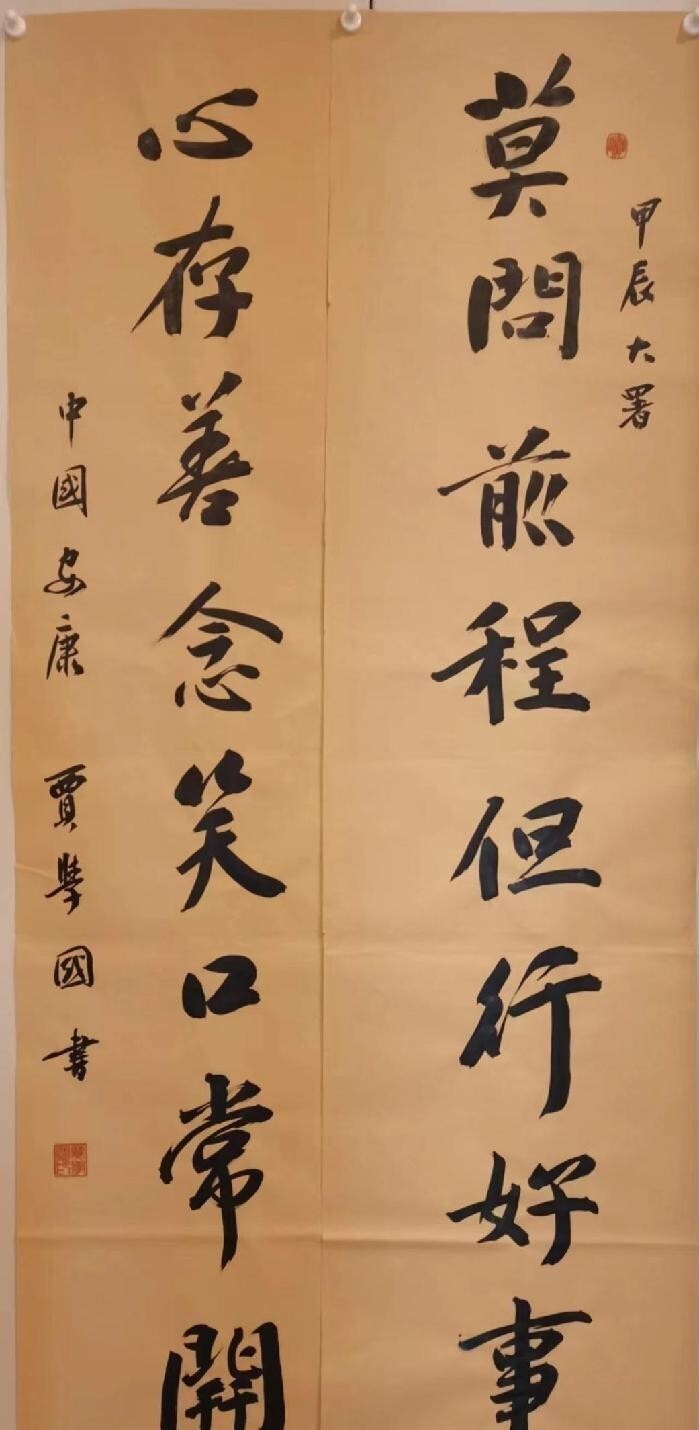 甲辰大暑
莫問前程但行好事
心存善念笑口常開
中國安康 賈學國書